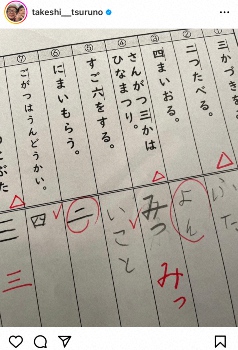 takeshi__tsuruno
①
三かづきを
②
二つたべる。
③
四まいおる。
④
さんがつ三かは
ひなまつり。
⑤
すご六をする。
⑥
にまいもらう。
⑦
ごがつはうんどうかい。
よん
みっ
みっ
いこと
二
四
三
三